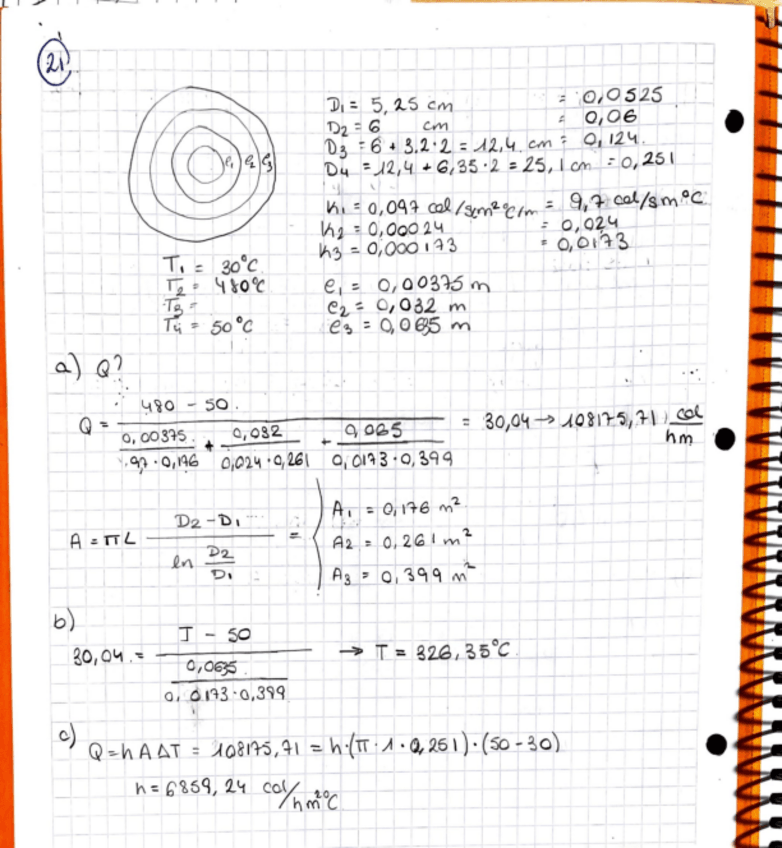 21
D1 = 5,25 cm = 0,0525
D2 = 6 cm = 0,06
D3 = 6 + 3.2·2 = 12,4 cm = 0,124.
D4 = 12,4 + 6,35·2 = 25,1 cm = 0,251
e1 e2 e3
K1 = 0,097 cal/scm²°C/m = 9,7 cal/s m·°C
K2 = 0,00024 = 0,024
K3 = 0,000173 = 0,0173
T1 = 30°C
T2 = 480°C
T3 =
T4 = 50°C
e1 = 0,00375 m
e2 = 0,032 m
e3 = 0,0635 m
a) Q?
Q = (480 - 50) / (0,00375/(,97·0,176) + 0,032/(0,024·0,261) + 0,065/(0,0173·0,399)) = 30,04 → 108175,71 cal/hm
A = πL (D2 - D1)/(ln D2/D1) =
A1 = 0,176 m²
A2 = 0,261 m²
A3 = 0,399 m²
b)
30,04 = (T - 50) / (0,0635/(0,0173·0,399)) → T = 326,35°C
c)
Q = h A ΔT = 108175,71 = h·(π·1·0,251)·(50-30)
h = 6859,24 cal/hm²°C